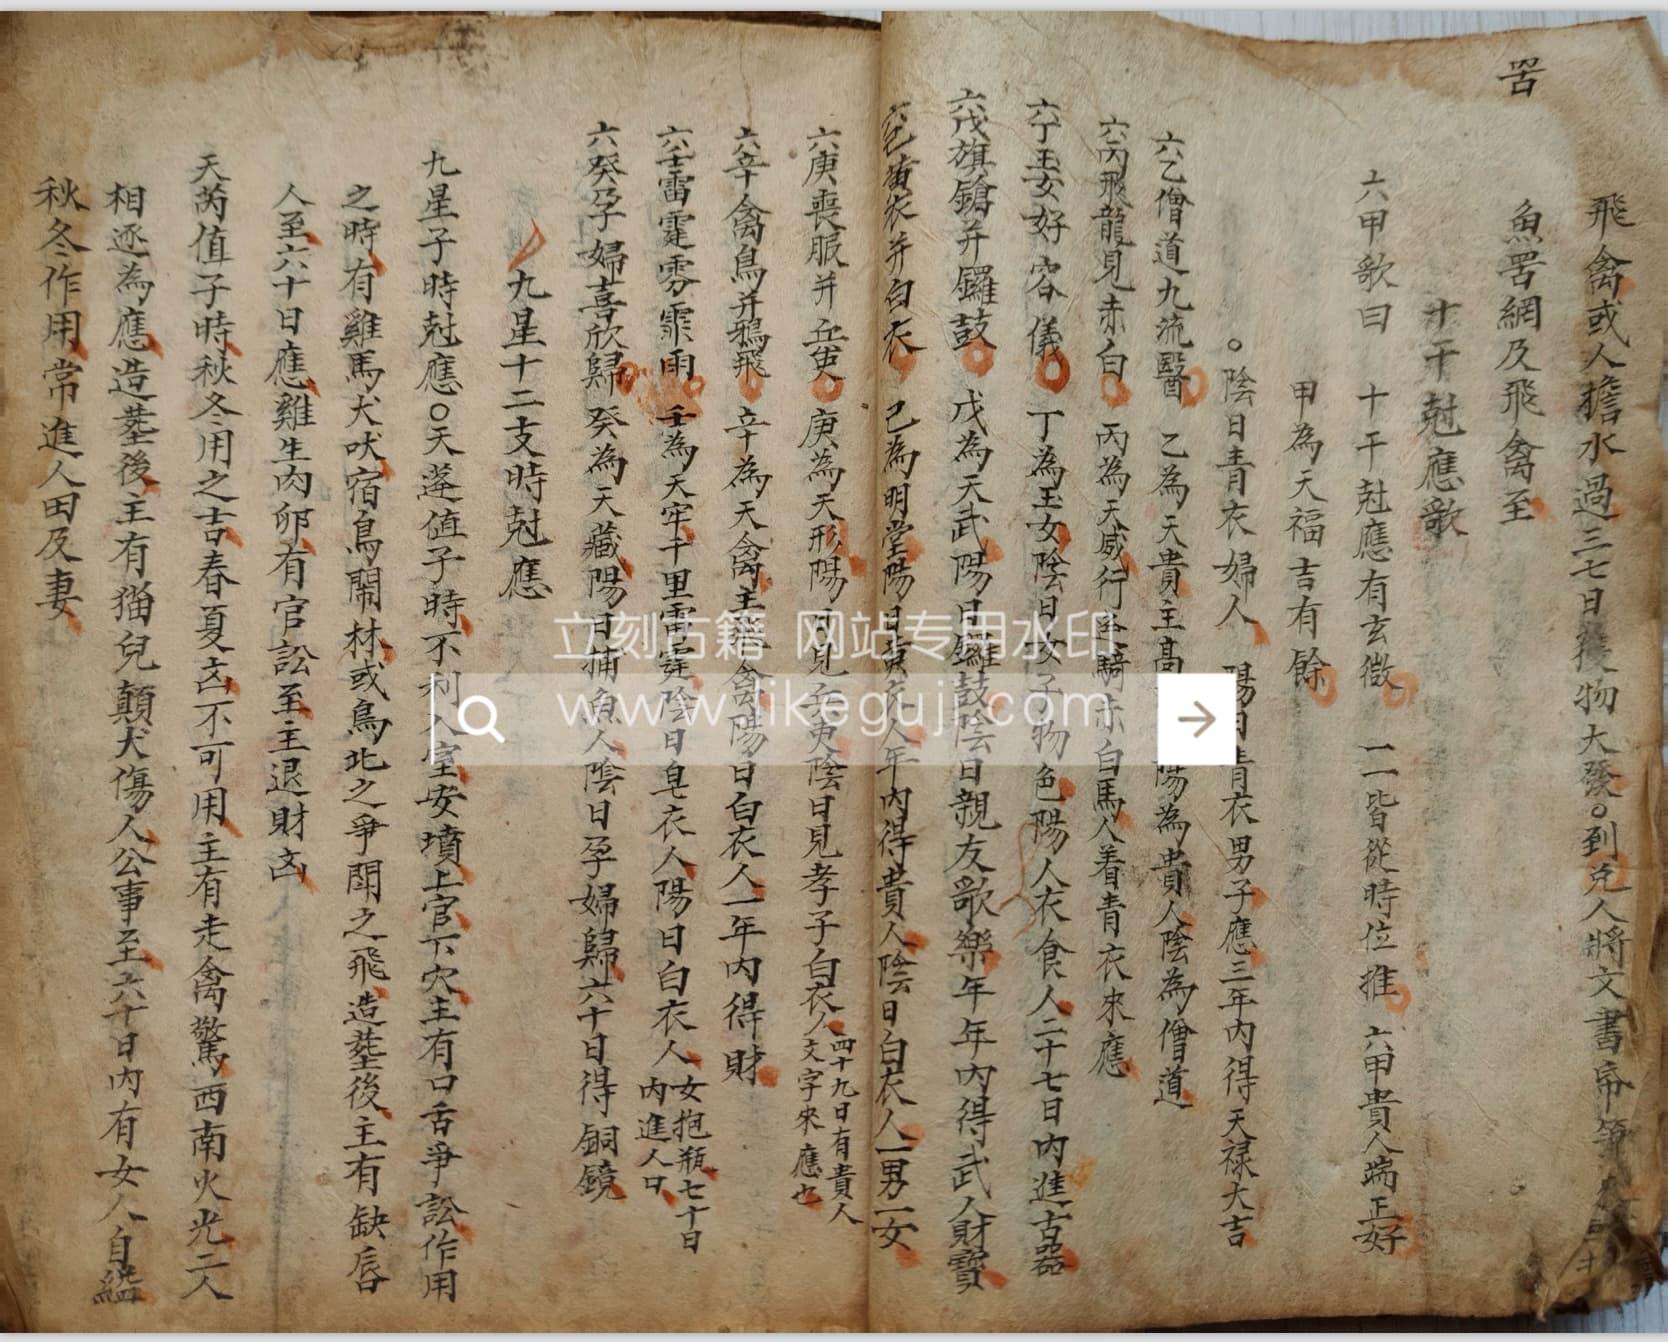 罟
飛禽或人擔水過三七日後物大發○到兌人將文書
魚罟網及飛禽至
十干尅應歌
六甲歌曰 十干尅應有玄微 一一皆從時位推 六甲貴人端正好
甲為天福吉有餘
○陰日青衣婦人 陽日青衣男子應三年內得天祿大吉
六乙僧道九流醫 乙為天貴主高 陽為貴人陰為僧道
六丙飛龍見赤白 丙為天威行 騎赤白馬人着青衣來應
六丁玉女好容儀 丁為玉女陰日女子物色陽人衣食人二十七日內進古器
六戊旗鎗并鑼鼓 戊為天武陽日鑼鼓陰日親友歌樂年年內得武人財寶
六己黃衣并白衣 己為明堂陽日黃衣人年內得貴人陰日白衣人一男一女
六庚喪服并兵吏 庚為天形陽日見兵吏陰日見孝子白衣人四十九日有貴人文字來應也
六辛禽鳥并鴉飛 辛為天禽主飛禽陽日白衣人一年內得財
六壬雷霆雰霏雨 壬為天牢千里雷霆陰日皂衣人陽日白衣人女抱瓶七十日內進人口
六癸孕婦喜欣歸 癸為天藏陽日捕魚人陰日孕婦歸六十日得銅鏡
九星十二支時尅應
九星子時尅應○天蓬值子時不利入室安墳上官下穴主有口舌爭訟作用
之時有雞馬犬吠宿鳥鬧林或鳥北之爭鬧之飛造塟後主有缺唇
人至六十日應雞生肉卵有官訟至主退財凶
天芮值子時秋冬用之吉春夏凶不可用主有走禽驚西南火光二人
相逐為應造塟後主有猫兒顛犬傷人公事至六十日內有女人自縊
秋冬作用常進人田及妻
立刻古籍 网站专用水印
www.likeguji.com